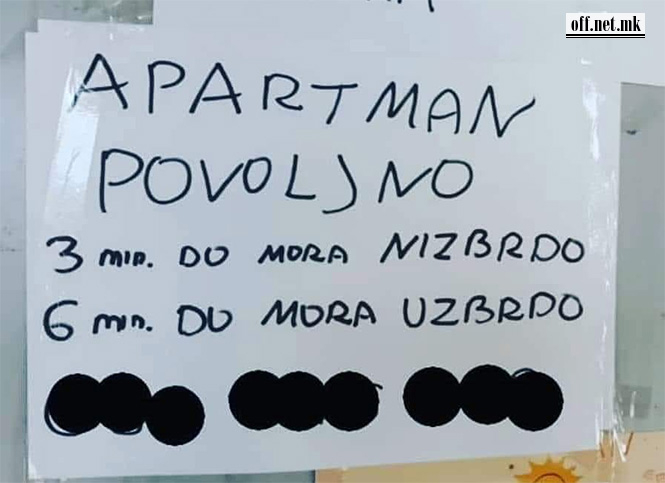 off.net.mk
APARTMAN
POVOLJNO
3 min. DO MORA NIZBRDO
6 min. DO MORA UZBRDO